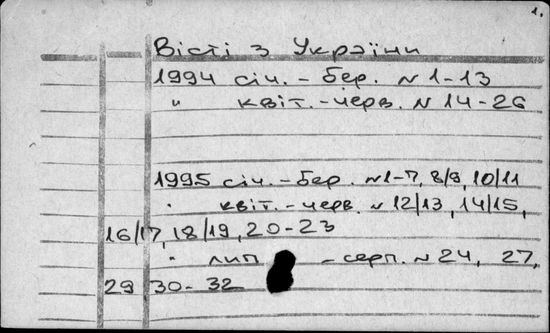 1.
Вісті з України
1994 січ. - бер. N 1-13
" квіт. - черв. N 14-26
1995 січ. - бер. N1-7, 8/9, 10/11
" квіт. - черв. N 12/13, 14/15,
16/17, 18/19, 20-23
" лип - серп. N 24, 27,
29 30-32